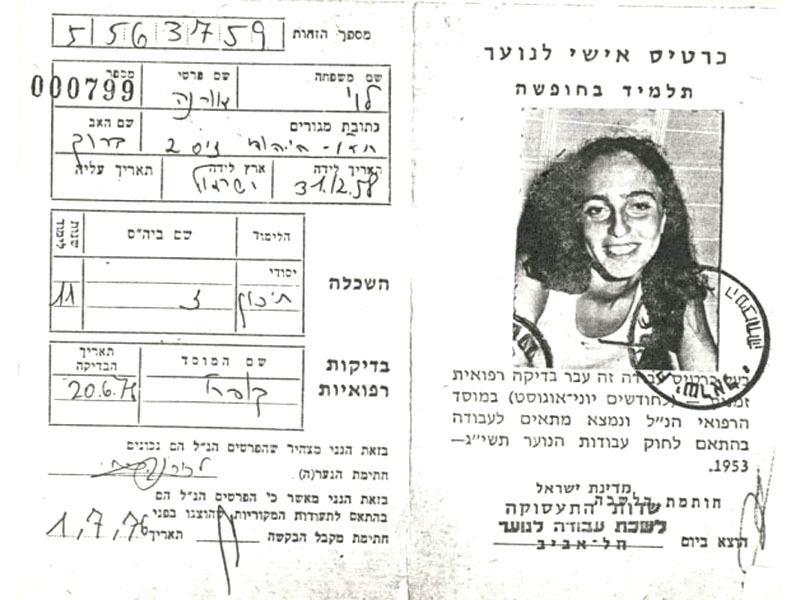 כרטיס אישי לנוער
תלמיד בחופשה
בעל כרטיס עבודה זה עבר בדיקה רפואית
(לחודשים יוני־אוגוסט) במוסד
הרפואי הנ״ל ונמצא מתאים לעבודה
בהתאם לחוק עבודות הנוער תשי״ג—
1953.
מדינת ישראל
חותמת הלשכה
שרות התעסוקה
לשכת עבודה לנוער
תל־אביב
הוצא ביום
מספר הזהות 5 5 6 3 7 5 9
שם משפחה שם פרטי מספר
לוי 000799
כתובת מגורים שם האב
2 ברוך
תאריך לידה ארץ לידה תאריך עליה
31.12.58 ישראל
השכלה
הלימוד שם ביה״ס שנות לימוד
יסודי
תיכון 11
בדיקות רפואיות
שם המוסד תאריך הבדיקה
20.6.76
בזאת הנני מצהיר שהפרטים הנ״ל הם נכונים
חתימת הנער(ה)
בזאת הנני מאשר כי הפרטים הנ״ל הם
בהתאם לתעודות המקוריות שהוצגו בפני
חתימת מקבל הבקשה תאריך 1,7,76